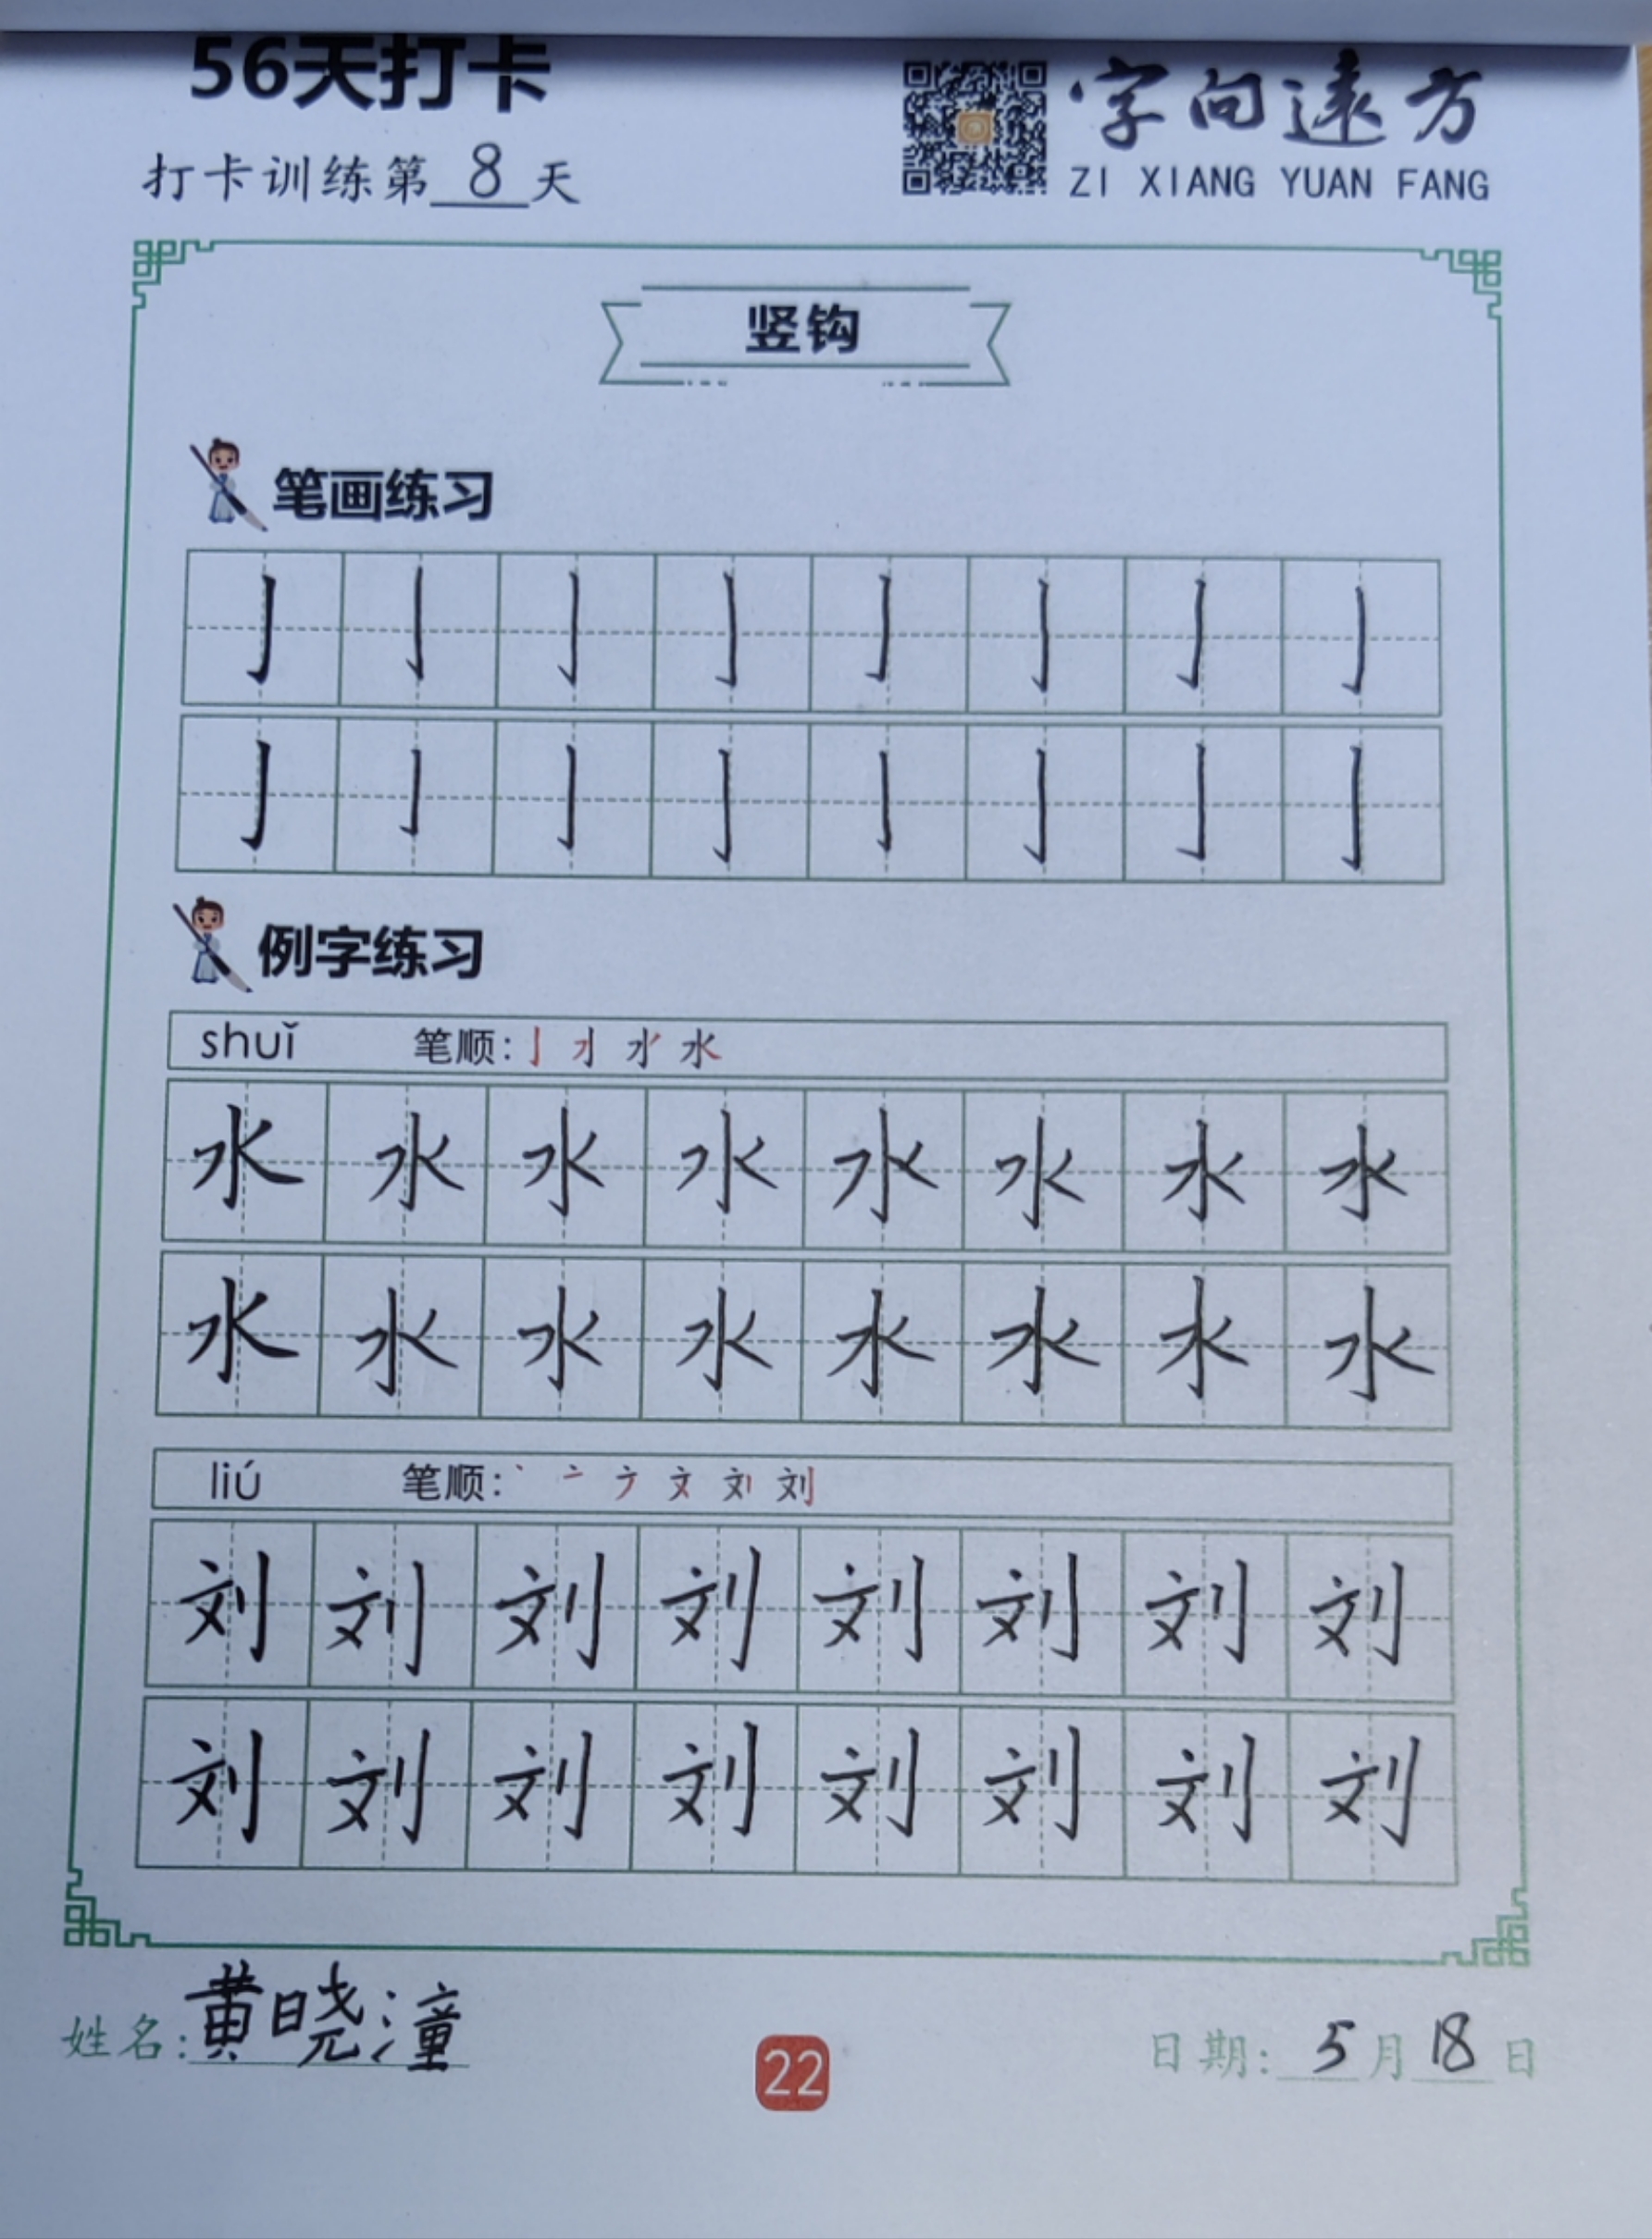 56天打卡
字向远方
打卡训练第 8 天
ZI XIANG YUAN FANG
竖钩
笔画练习
亅 亅 亅 亅 亅 亅 亅 亅
亅 亅 亅 亅 亅 亅 亅 亅
例字练习
shuǐ 笔顺:
水 水 水 水 水 水 水 水
水 水 水 水 水 水 水 水
liú 笔顺:
刘 刘 刘 刘 刘 刘 刘 刘
刘 刘 刘 刘 刘 刘 刘 刘
姓名:黄晓潼
22
日期: 5 月 18 日